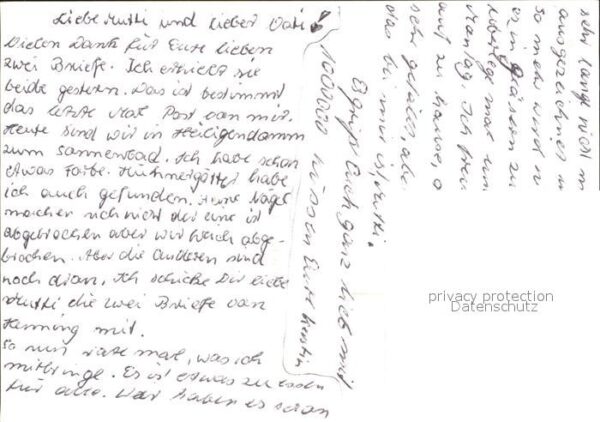 Liebe Mutti und lieber Vati!
Vielen Dank für Eure lieben
zwei Briefe. Ich erhielt sie
beide gestern. Das ist bestimmt
das letzte Mal Post von mir.
Heute sind wir in Heiligendamm
zum Sonnenbad. Ich habe schon
etwas Farbe. Hühnergötter habe
ich auch gefunden. Meine Nägel
machen sich nicht der eine ist
abgebrochen aber wir gleich abge-
brochen. Aber die anderen sind
noch dran. Ich schicke Dir liebe
Mutti die zwei Briefe von
Henning mit.
So nun rate mal, was ich
mitbringe. Es ist etwas zu essen
für alle. Wir haben es schon
sehr lange nicht m
ausgezeichnet
so mehr wird
es in Gläsern zu
überlege mal
Montag. Ich freu
auf zu Hause, o
sehr gefällt, abe
das bei mir ist, Mutti.
Es grüßt Euch ganz lieb mit
1000000 Küssen Eure Kerstin
privacy protection
Datenschutz